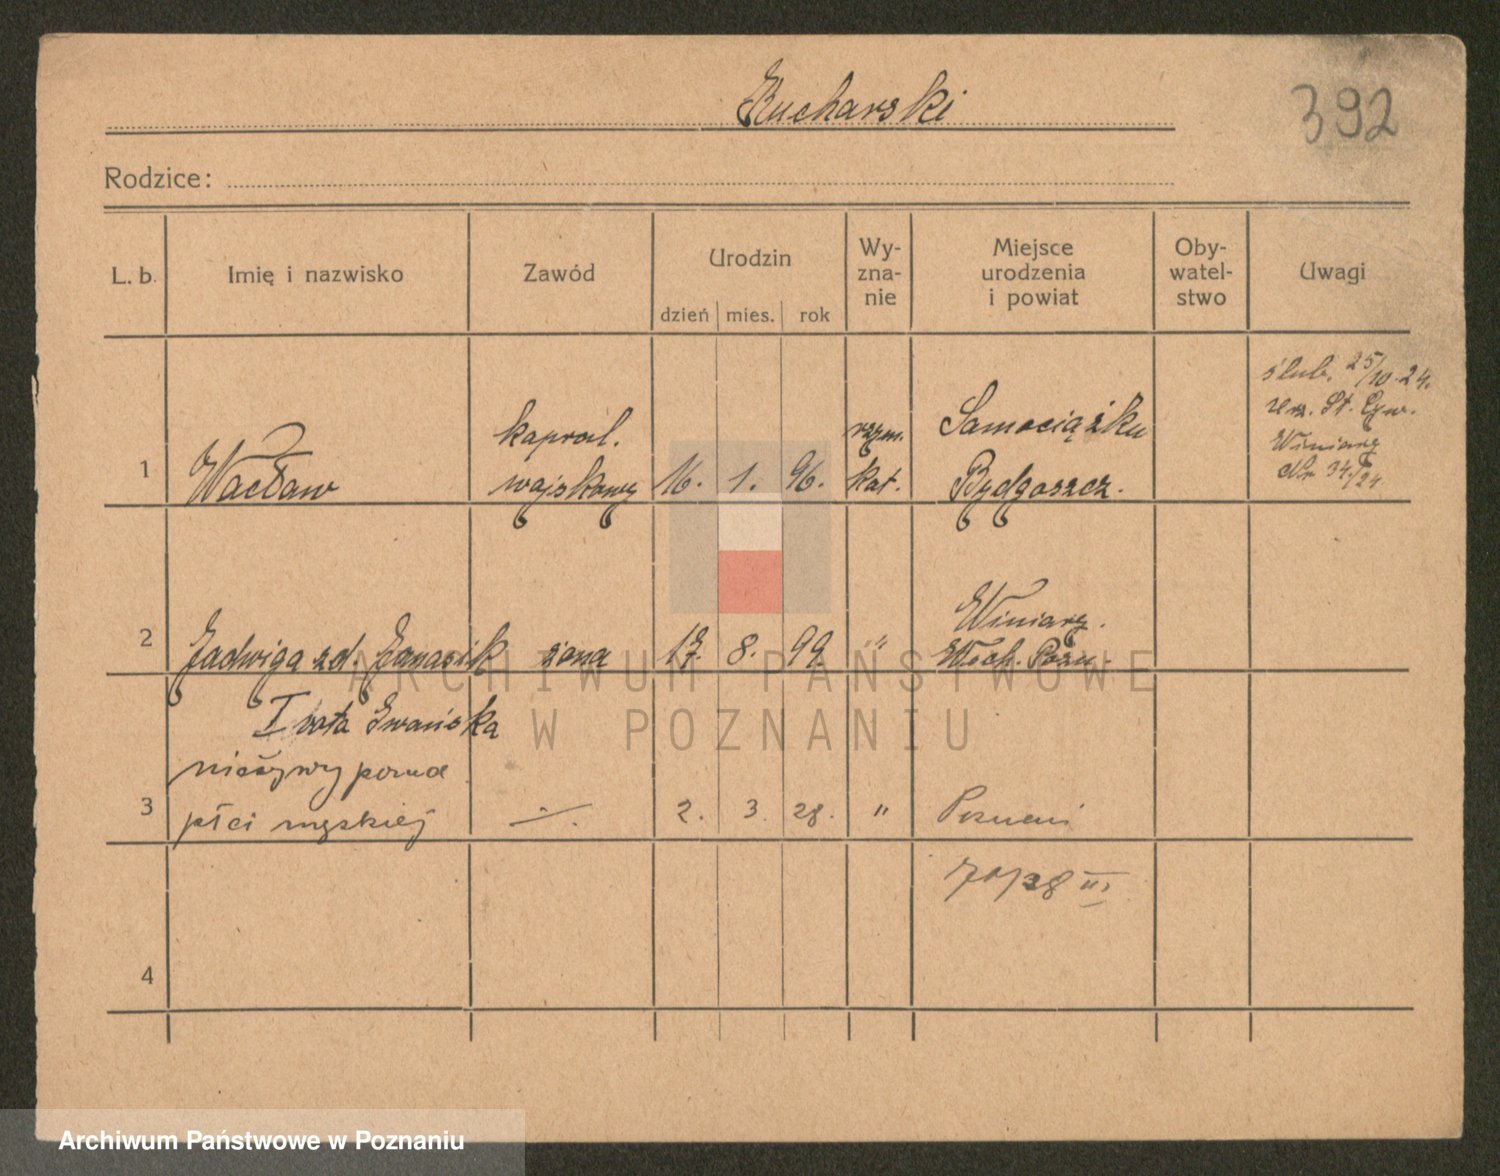 Kucharski
392
Rodzice:
L. b.
Imię i nazwisko
Zawód
Urodzin
dzień
mies.
rok
Wy-
zna-
nie
Miejsce
urodzenia
i powiat
Oby-
watel-
stwo
Uwagi
1
Wacław
kapral.
wojskowy
16.
1.
96.
rzym.
kat.
Samociążku
Bydgoszcz.
ślub. 25/10.24.
St.
Winiary
Nr 34/24.
2
Jadwiga zd. Janasik
żona
17.
8.
99
"
Winiary.
Wsch. Pozn.
I vota Iwańska
3
nieżywy porod
płci męskiej
2.
3.
28.
"
Poznań
28 III
4
ARCHIWUM PAŃSTWOWE
W POZNANIU
Archiwum Państwowe w Poznaniu